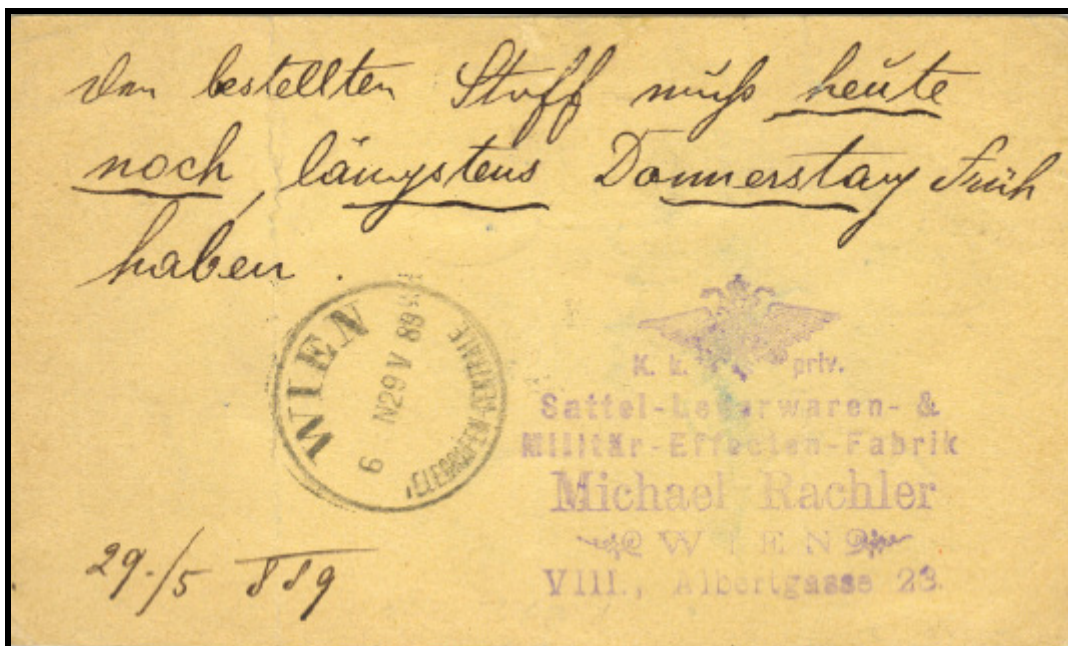 den bestellten Stoff muß heute
noch, längstens Donnerstag früh
haben.
WIEN
6 N29 V 89
TELEGRAFEN-CENTRALE
K. k. priv.
Sattel-Lederwaren- &
Militär-Effecten-Fabrik
Michael Rachler
WIEN
VIII., Albertgasse 23.
29./5 889